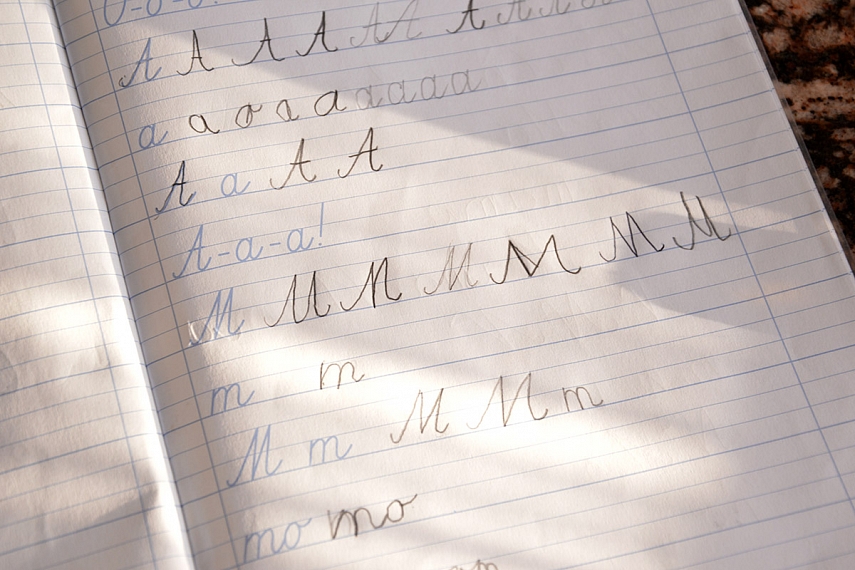 O-o-o!
A A A A A A A A A
a a a a a a a a a
A a A A
A-a-a!
M M M M M M M
m m
M m M M m
mo mo